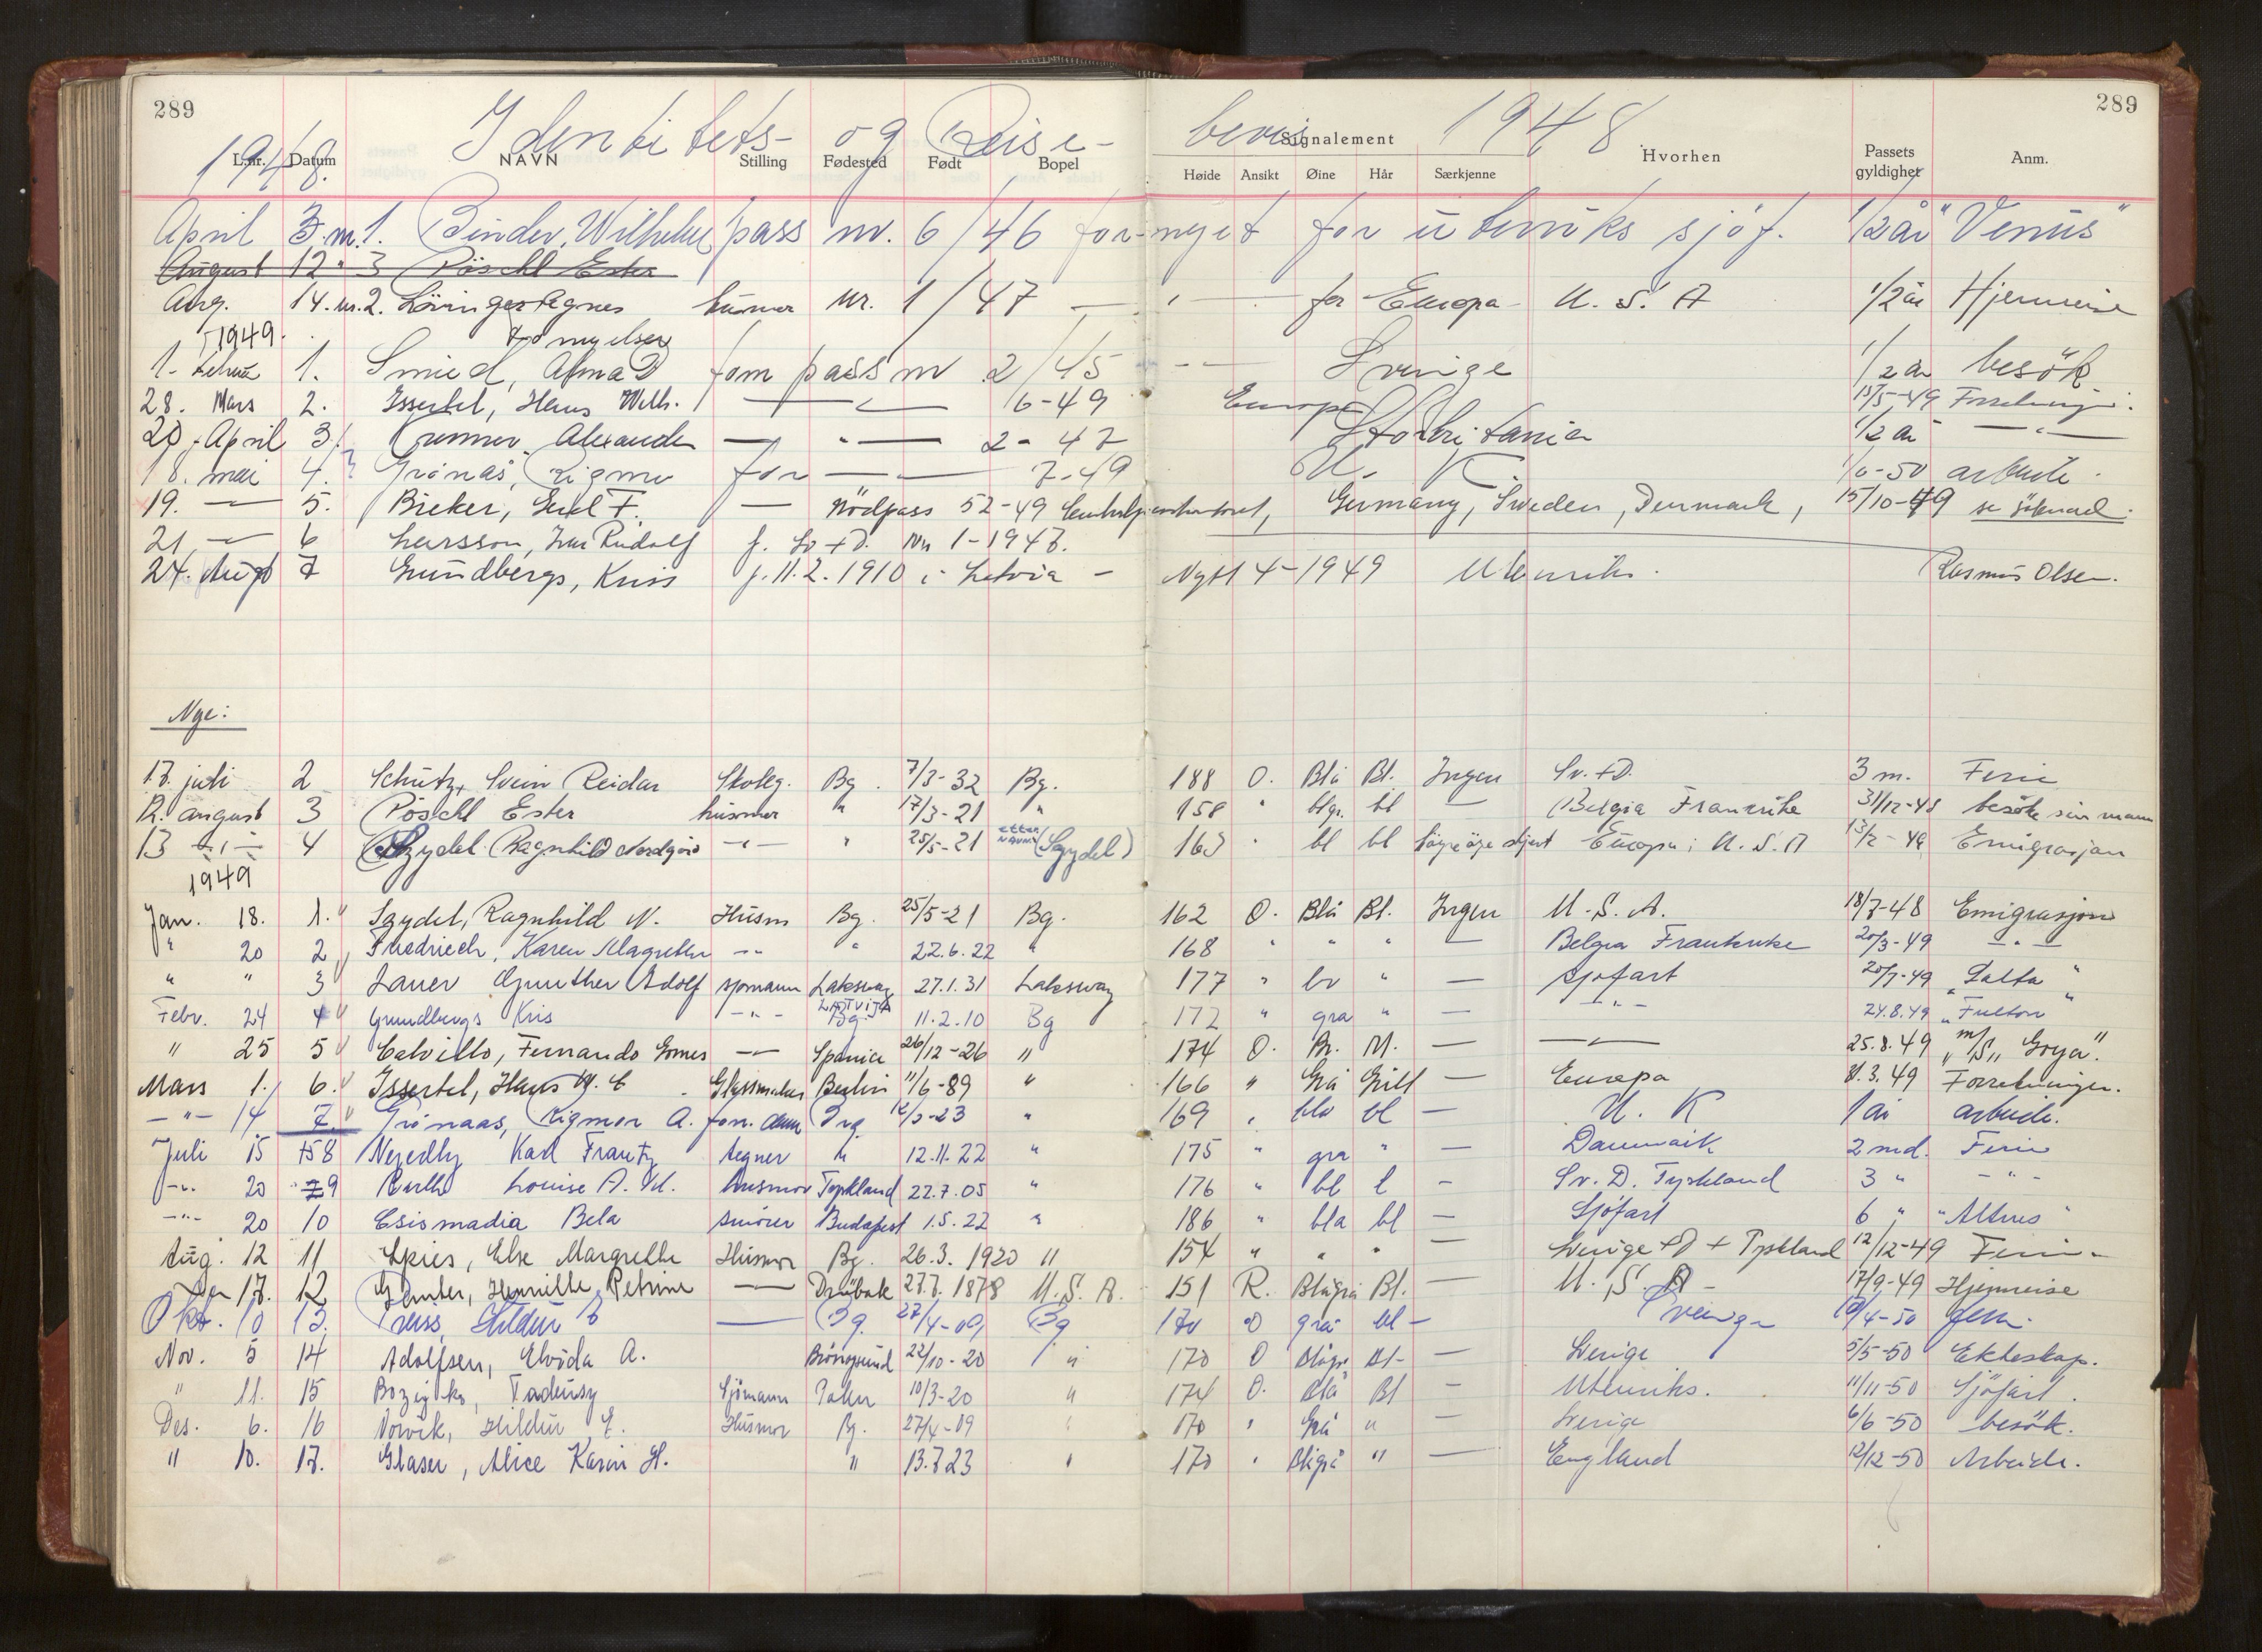 289 289
Identitets- og Reise- bevis 1948
1948.
L.nr. Datum NAVN Stilling Fødested Født Bopel Signalement Hvorhen Passets gyldighet Anm.
Høide Ansikt Øine Hår Særkjenne
April 3. nr. 1. Binder, Wilhelm pass nr. 6/46 for-nyet for utenriks sjöf. 1/2 år "Venus"
August 12 " 3 Pöschl Ester
Aug. 14. nr. 2. Agnes husmor Nr. 1/47 — " — for Europa U.S.A 1/2 år Hjemreise
1949. Fornyelser
1. 1. Smied, Alma D fom pass nr 2/45 — Sverige 1/2 år besök
28. Mars 2. Issertel, Hans Wilh. — " — 6-49 Europa 15/5-49
20. April 3. Kremner, Alexander — " — 2-47 Storbritania 1/2 år — " —
18. mai 4. Grönås, Rigmor for — " — 7-49 U. K. 1/6-50 arbeide.
19. — 5. Bieker, F. — Nödpass 52-49 Germany, Sweden, Denmark, 15/10-49 se söknad.
21 — " 6 Larsson, Ivar Rudolf f. Sv + D. Nr 1-1947.
24. Aug 7 Grundbergs, Kriss f. 11.2.1910 i Latvia — Nytt 4-1949 Utenriks. Rasmus Olsen.
Nye:
17. juli 2 Schutz, Svein Reidar Skoleg. Bg. 7/3-32 Bg. 188 O. Blå Bl. Ingen Sv. + D. 3 m. Ferie
12. august 3 Pöschl Ester husmor " 17/3-21 " 158 " blgr. bl — Belgia Frankrike 31/12-48 besöke sin mann
13 — " — 4 Szydel Ragnhild Nordgård — " — " 25/5-21 etter navn (Szydel) 163 " bl bl höyre öye skjevt Europa; U.S.A 13/2-49 Emigrasjon
1949
Jan. 18. 1. Szydel, Ragnhild N. Husm Bg. 25/5-21 Bg. 162 O. Blå Bl. Ingen U.S.A. 18/7-48 Emigrasjon
" 20 2 Friedriech, Karen Margrethe — " — " 22.6.22 " 168 " " " — Belgia Frankrike 20/3-49 — " —
" " 3 Lauer Gunther Adolf sjömann Laksevåg 27.1.31 Laksevåg 177 " br " — Sjöfart 20/7-49 "Salta"
Febr. 24 4 Grundbergs Kris — " — LATVIJA Bg 11.2.10 Bg 172 " grå " — — " — 24.8.49 "Fulton"
" 25 5 Calvillo, Fernando Gomes — " — Spania 26/12-26 " 174 O. Br. M. — — " — 25.8.49 m/S "Goya".
Mars 1. 6. Issertel, Hans W. C. Glassmaker Berlin 11/6-89 " 166 " Grå Grått — Europa 31.3.49 Forretninger.
— " — 14 7. Grönaas, Rigmor A. Brg. 12/3-23 " 169 " blå bl — U. K 1 år arbeide.
Juli 15 8 Nejedly Karl Frantz tegner " 12.11.22 " 175 " grå " — Danmark 2 md. Ferie
— " — 20 9 Louise A. M. husmor Tyskland 22.7.05 " 176 " bl l — Sv. D. Tyskland 3 " — " —
— " — 20 10 Csismadia Bela Budapest 1.5.22 " 186 " blå bl — Sjöfart 6 " "Altnes"
Aug. 12 11 Spies, Else Margrethe Husmor Bg. 26.3.1920 " 154 " " " — Sverige + D + Tyskland 12/12-49 Ferie
17. 12 Henriette Petrine — Dröbak 27.7.1878 U.S.A. 151 R. Blågrå Bl. — U.S.A — 17/9-49 Hjemreise
Okt. 10 13. Hildur E — Bg. 27/4-09 Bg 170 O grå bl — Sverige 10/4-50
Nov. 5 14 Adolfsen, Elvida A. Brönnysund 22/10-20 " 170 O Blågr. Bl — Sverige 5/5-50 Ekteskap.
" 11. 15 Tadeusy Sjömann Polen 10/3-20 " 174 O. Blå Bl — Utenriks. 11/11-50 Sjöfart.
Des. 6. 16 Norvik, Hildur E. Husmor Bg. 27/4-09 " 170 " Grå " — Sverige 6/6-50 besök.
" 10. 17. Glaser, Alice Karin H. " 13.7.23 " 170 " Blågrå " — England 12/12-50 Arbeide.